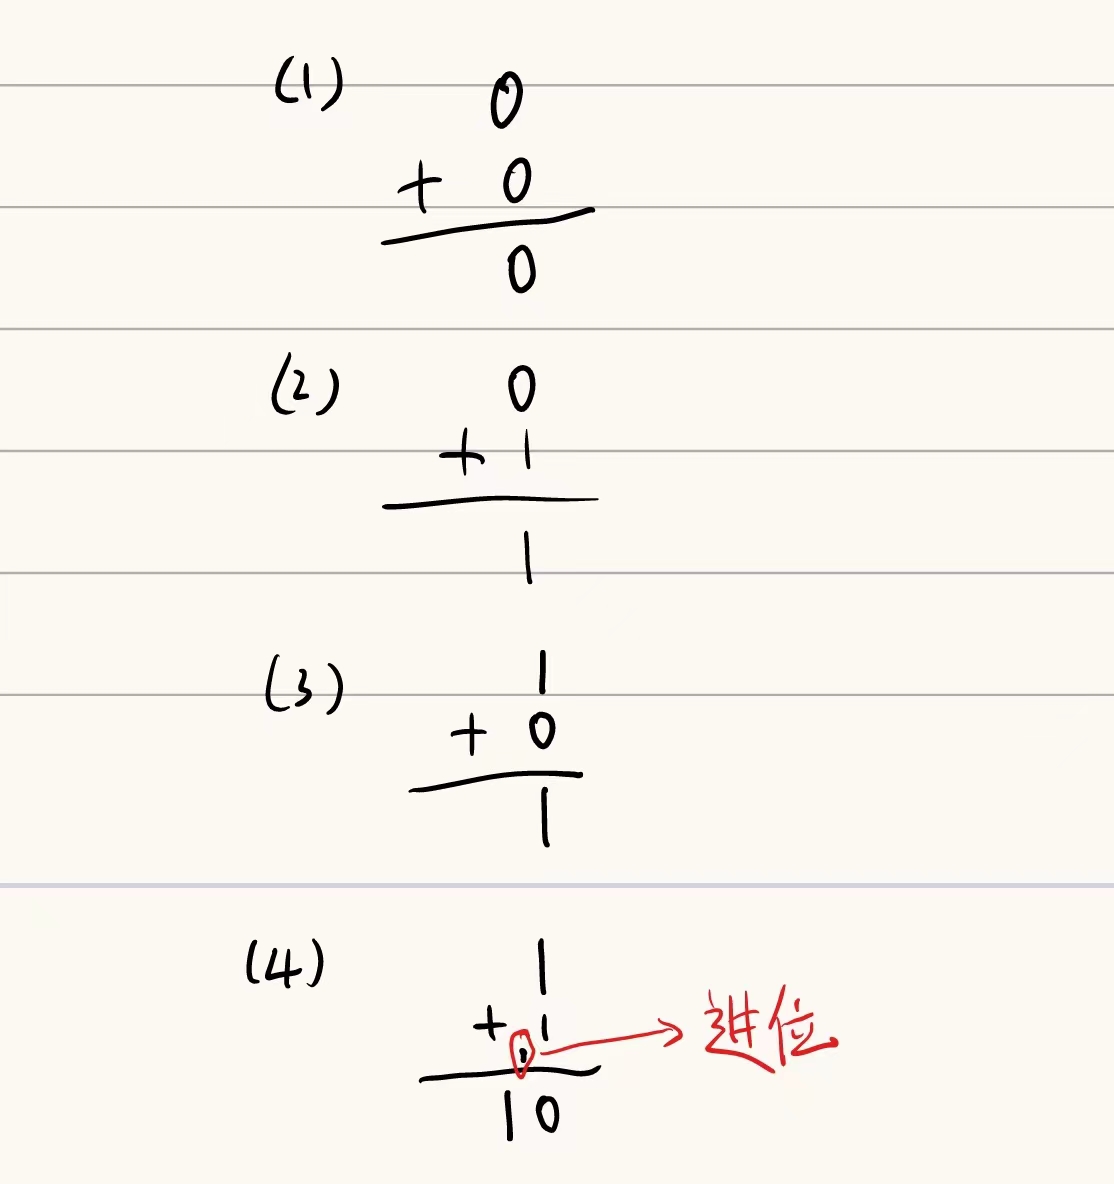 (1) 0
+ 0
0
(2) 0
+ 1
1
(3) 1
+ 0
1
(4) 1
+ 1
进位
10